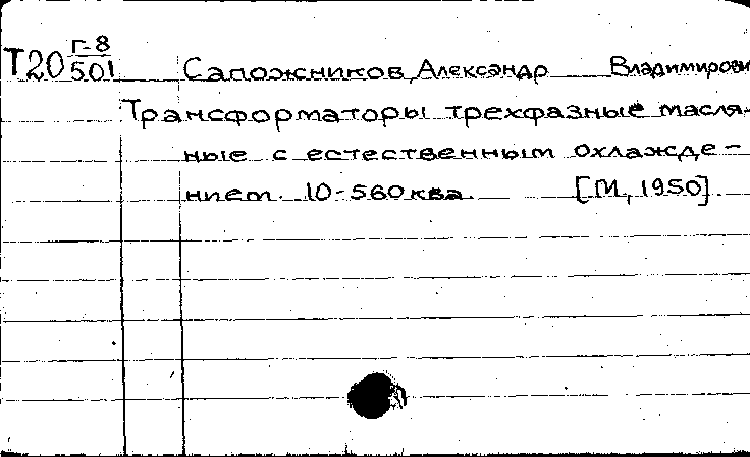 Т20 Г-8/501 Сапожников, Александр Владимирови
Трансформаторы трехфазные масля-
ные с естественным охлажде-
нием. 10-560 ква. [М, 1950].